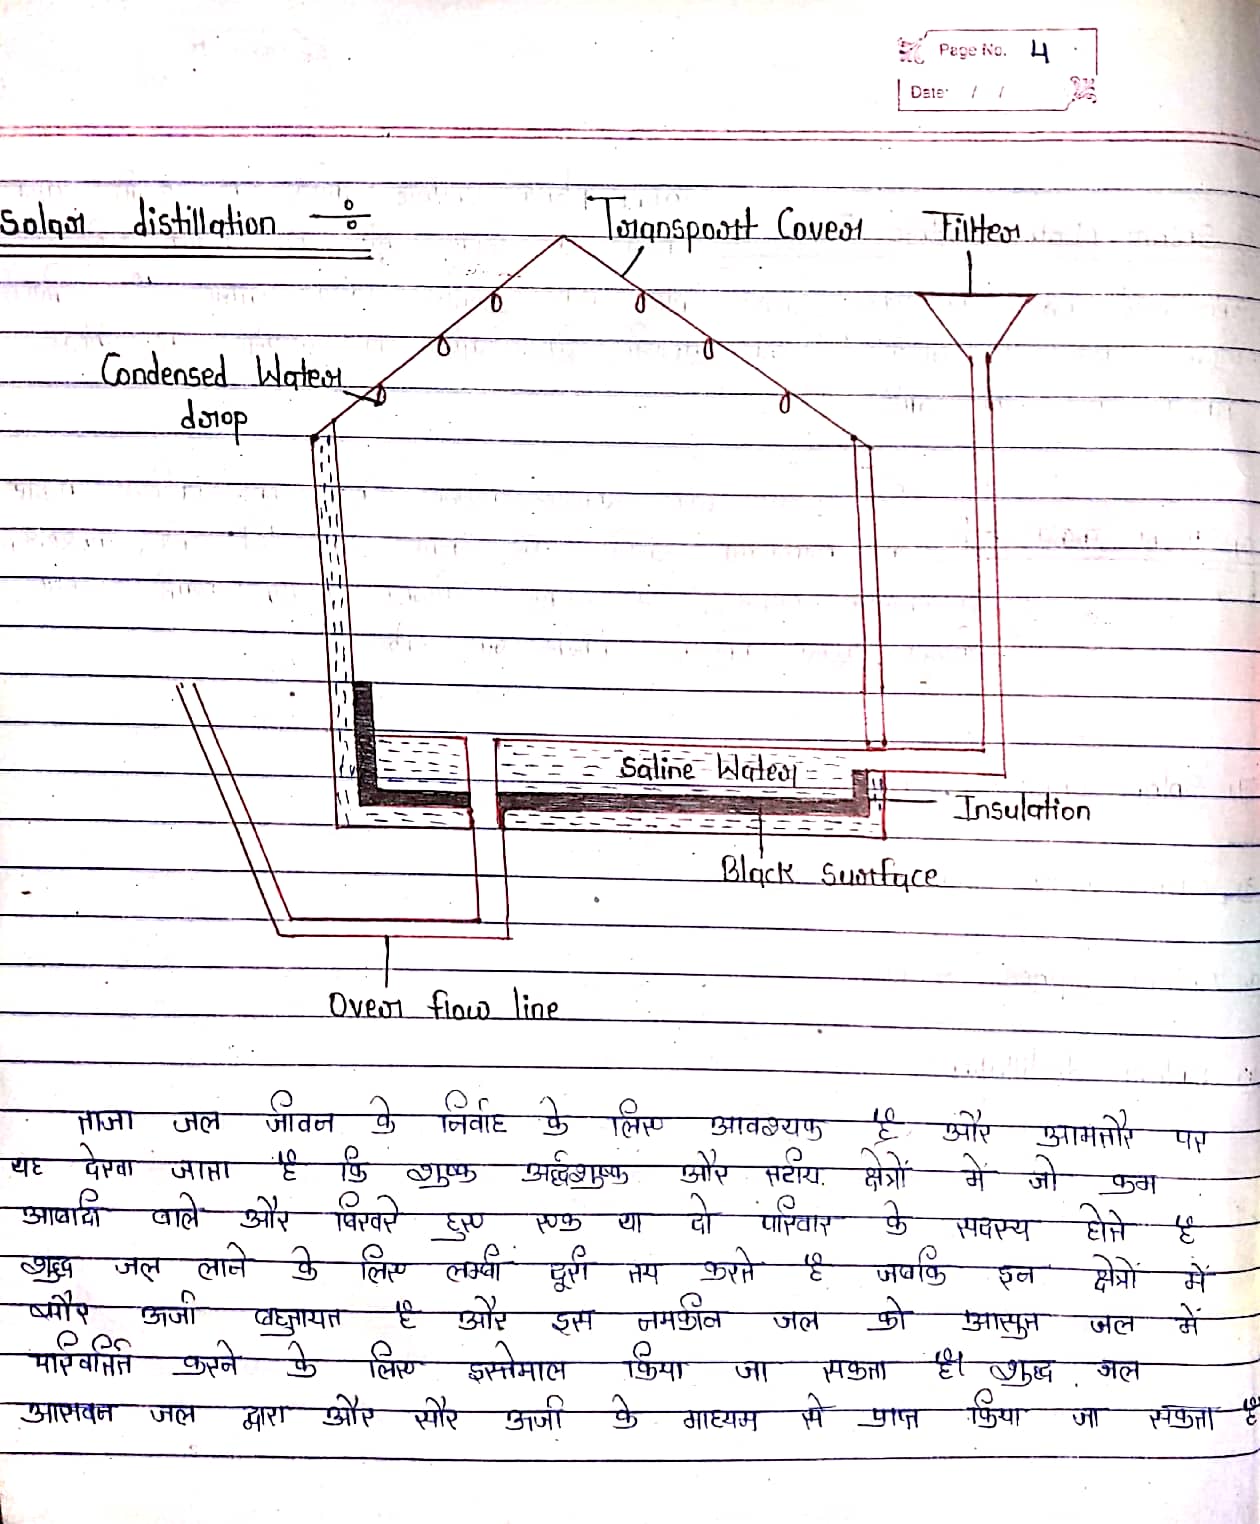 Page No. 4
Date: / /
Solar distillation ÷
Transport Cover
Fillter
Condensed Water
drop
Saline Water
Insulation
Black Surface
Over flow line
ताजा जल जीवन के निर्वाह के लिए आवश्यक है और आमतौर पर
यह देखा जाता है कि शुष्क अर्द्धशुष्क और तटीय क्षेत्रों में जो कम
आबादी वाले और बिखरे हुए एक या दो परिवार के सदस्य होते है
शुद्ध जल लाने के लिए लम्बी दूरी तय करते है जबकि इन क्षेत्रों में
सौर ऊर्जा बहुतायत है और इस नमकीन जल को आसुत जल में
परिवर्तित करने के लिए इस्तेमाल किया जा सकता है। शुद्ध जल
आसवन जल द्वारा और सौर ऊर्जा के माध्यम से प्राप्त किया जा सकता है